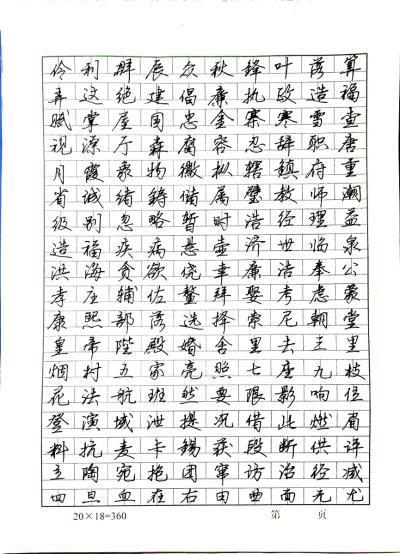 伶利群辰众秋锋叶荡算
弄这绝建倡廉执政造福
赋掌屋国忠金寨寒雪壶
视源厅森腐容忍辞职唐
月霞象物微拟辖镇府重
省城绪铸借属璧教师潮
级别忽略暂时浩经理益
造福疾病悬壶济世临泉
洪海贪欲侥幸廉浩奉公
孝庄辅佐鳌拜娶考虑蒙
康熙部落选择索尼朝堂
皇帝陛殿婚舍里去王里
烟村五家亮照七座九枝
花法航班然要限影响位
登演域泄提况借此燃眉
料抗麦卡锡获段断供详
立陶宛抱团窜访治经减
四旦血在右由曲而元尤
20×18=360 第 页